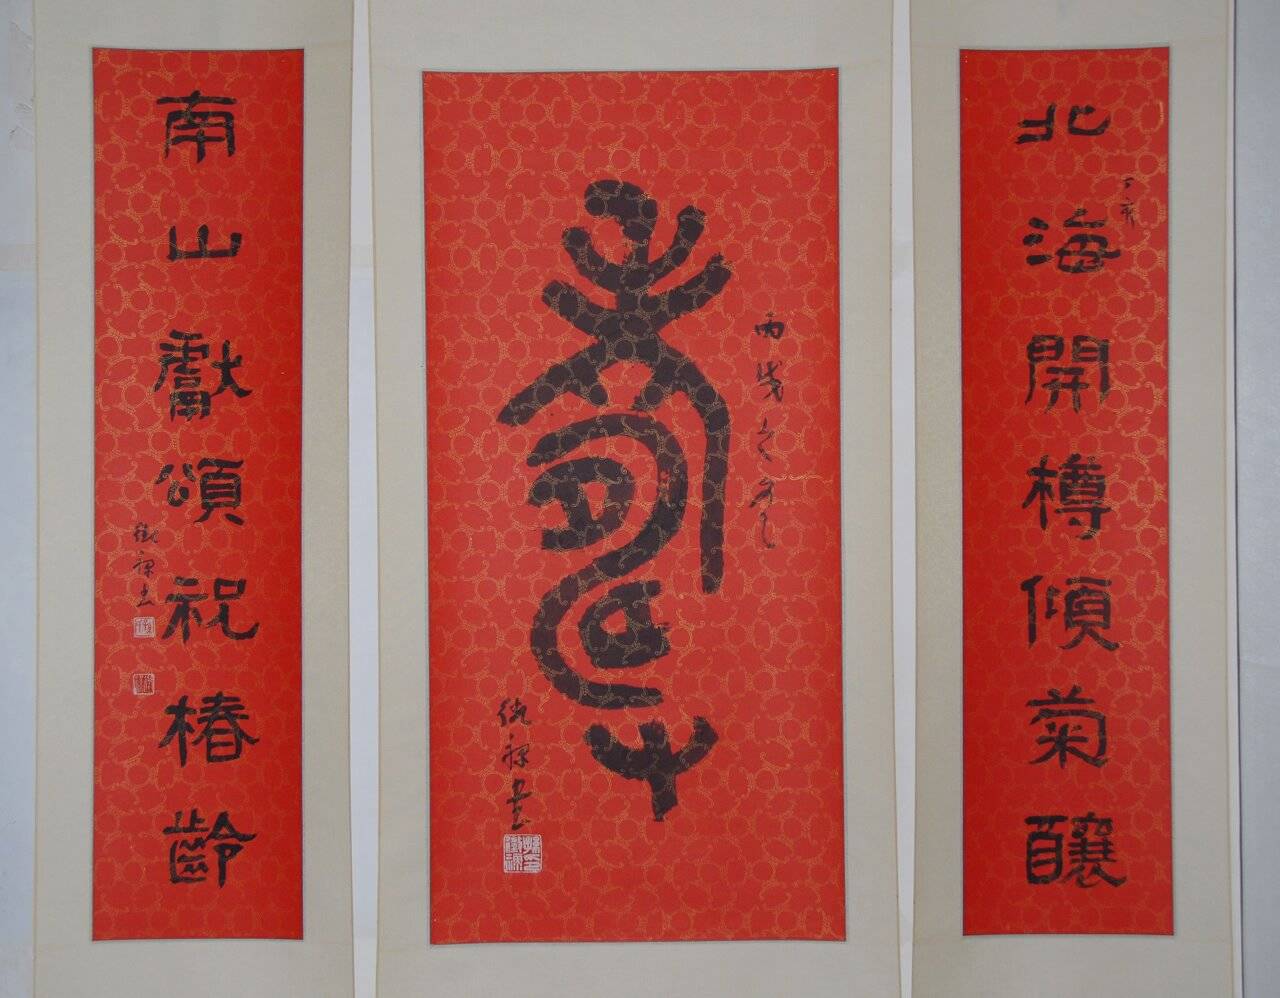 北海開樽傾菊釀
丁亥
壽
丙戌
書
南山獻頌祝椿齡
書